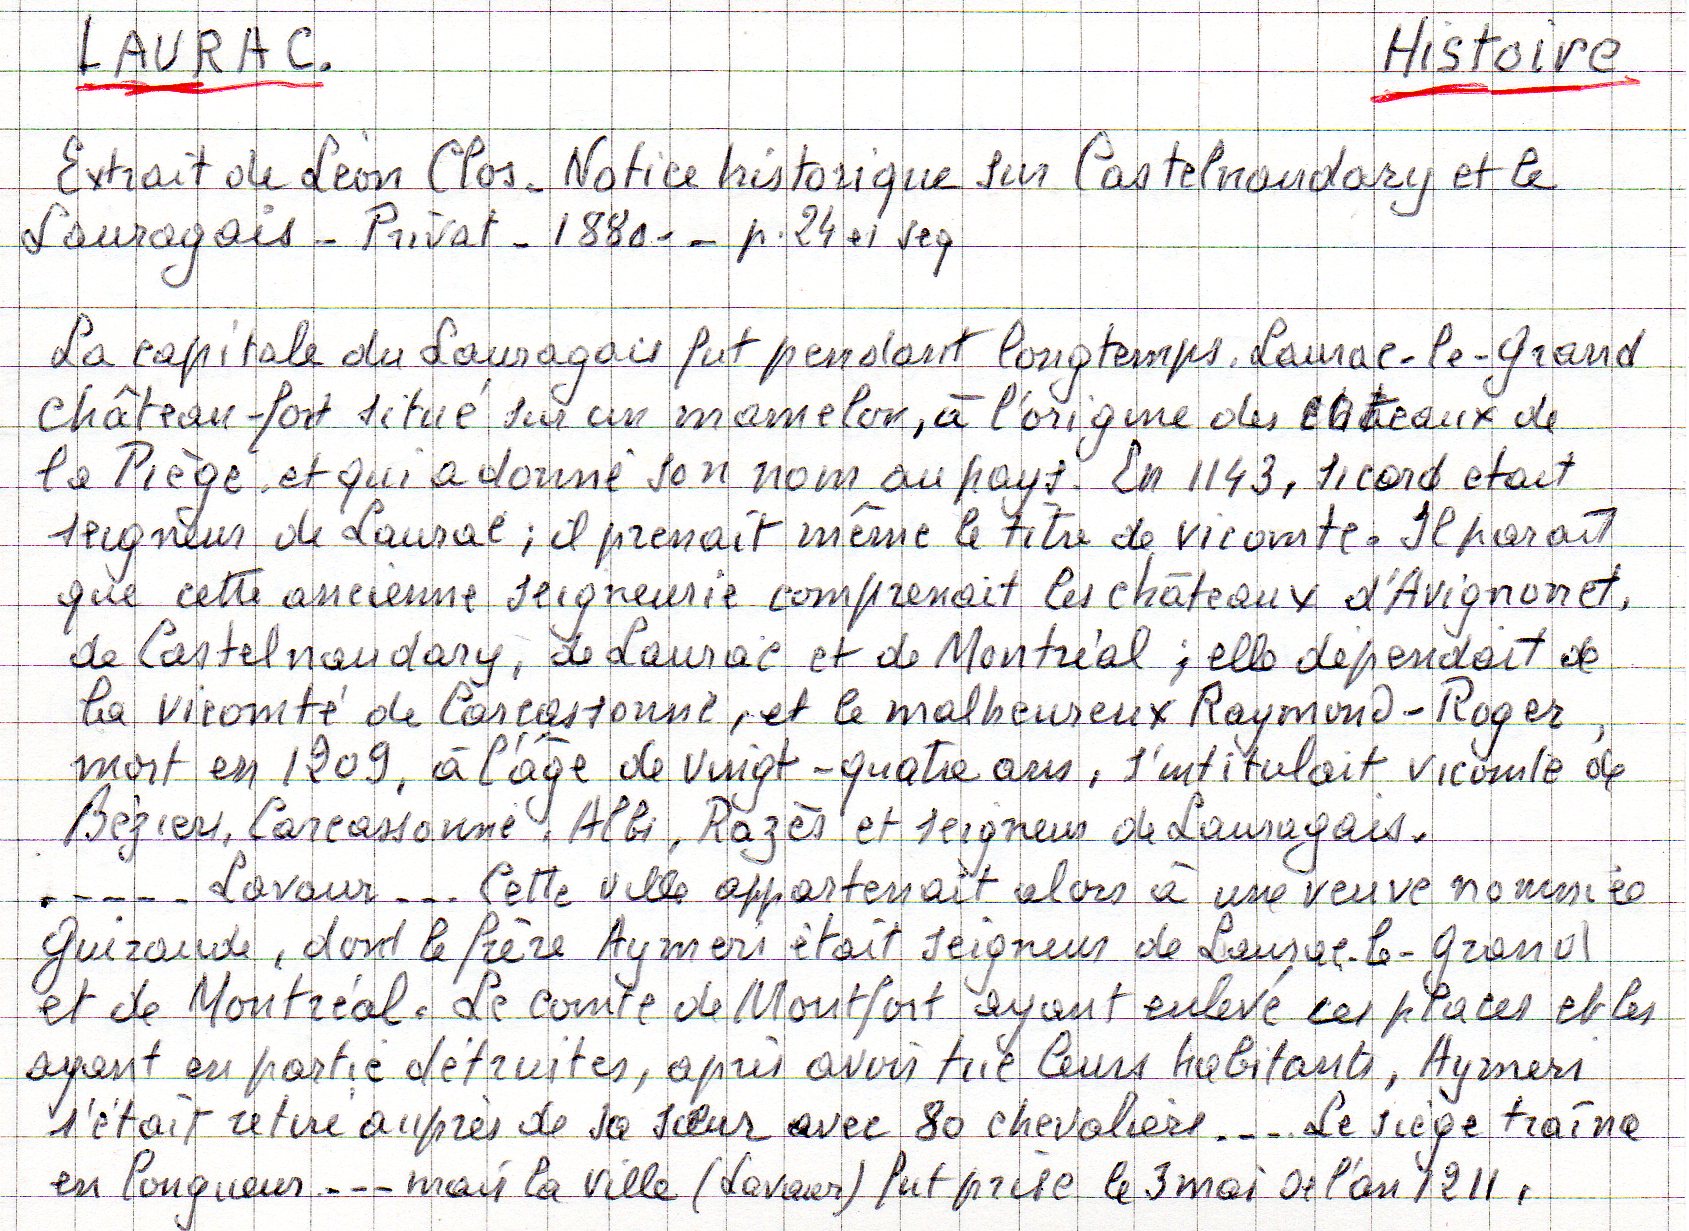 LAURAC. Histoire
Extrait de Léon Clos. Notice historique sur Castelnaudary et le
Lauragais - Privat - 1880 - - p. 24 et seq
La capitale du Lauragais fut pendant longtemps. Laurac-le-Grand
château-fort situé sur un mamelon, à l'origine des côteaux de
la Piège, et qui a donné son nom au pays. En 1143, Sicard etait
seigneur de Laurac ; il prenait même le titre de vicomte. Il parait
que cette ancienne seigneurie comprenait les châteaux d'Avignonet,
de Castelnaudary, de Laurac et de Montréal ; elle dépendait de
la vicomté de Carcassonne, et le malheureux Raymond-Roger,
mort en 1209, à l'âge de vingt-quatre ans, s'intitulait vicomte de
Béziers, Carcassonne, Albi, Razès et seigneur de Lauragais.
. - - - - - Lavaur - - - Cette ville appartenait alors à une veuve nommée
Guiraude, dont le frère Aymeri était seigneur de Laurac-le-Grand
et de Montréal. Le comte de Montfort ayant enlevé ces places et les
ayant en partie détruites, après avoir tué leurs habitants, Aymeri
s'était retiré auprès de sa sœur avec 80 chevaliers - - - - Le siège traîna
en longueur - - - mais la ville (Lavaur) fut prise le 3 mai de l'an 1211.